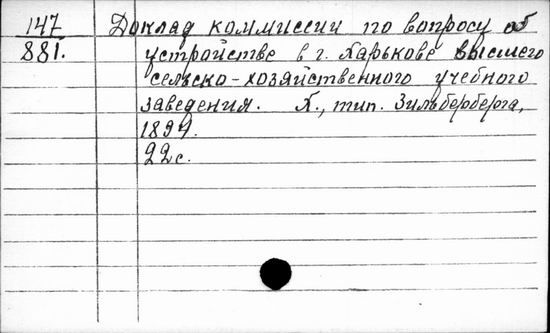 147 Доклад коммиссии по вопросу об
881. устройстве в г. Харькове высшего
сельско-хозяйственного учебного
заведения. Х., тип. Зильберберга,
1897.
22с.